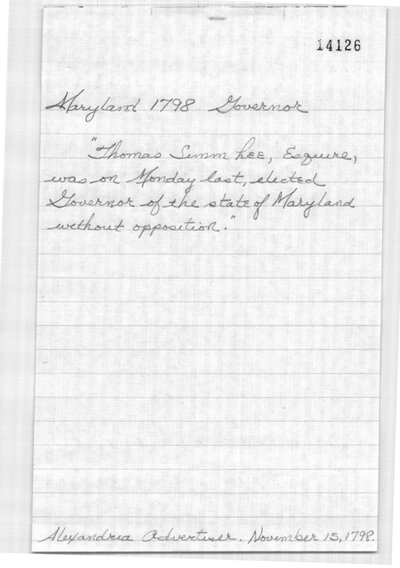 14126
Maryland 1798 Governor
"Thomas Simm Lee, Esquire,
was on Monday last, elected
Governor of the state of Maryland
without opposition."
Alexandria Advertiser. November 15, 1798.